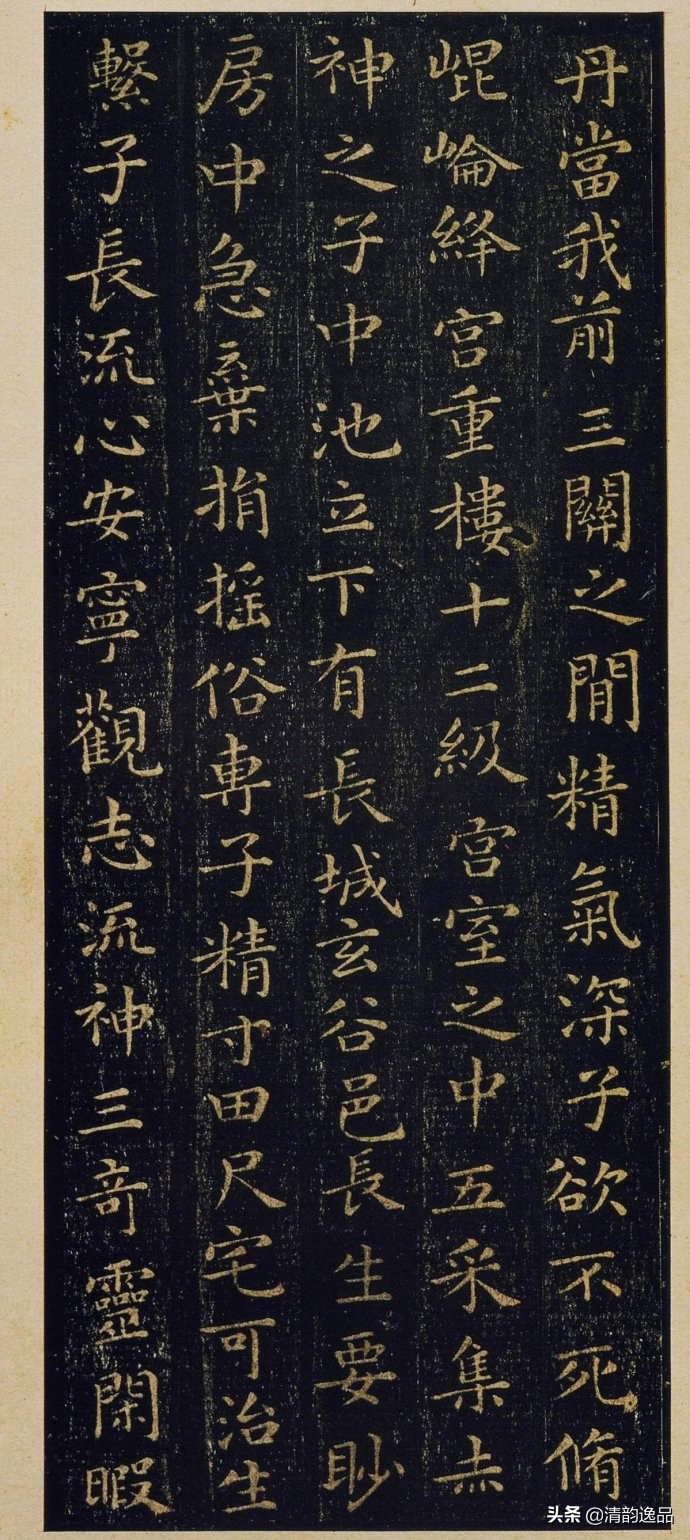 丹當我前三關之間精氣深子欲不死脩
崐崘絳宮重樓十二級宮室之中五采集赤
神之子中池立下有長城玄谷邑長生要眇
房中急棄捐搖俗專子精寸田尺宅可治生
繫子長流心安寧觀志流神三奇靈閑暇
头条@清韵逸品